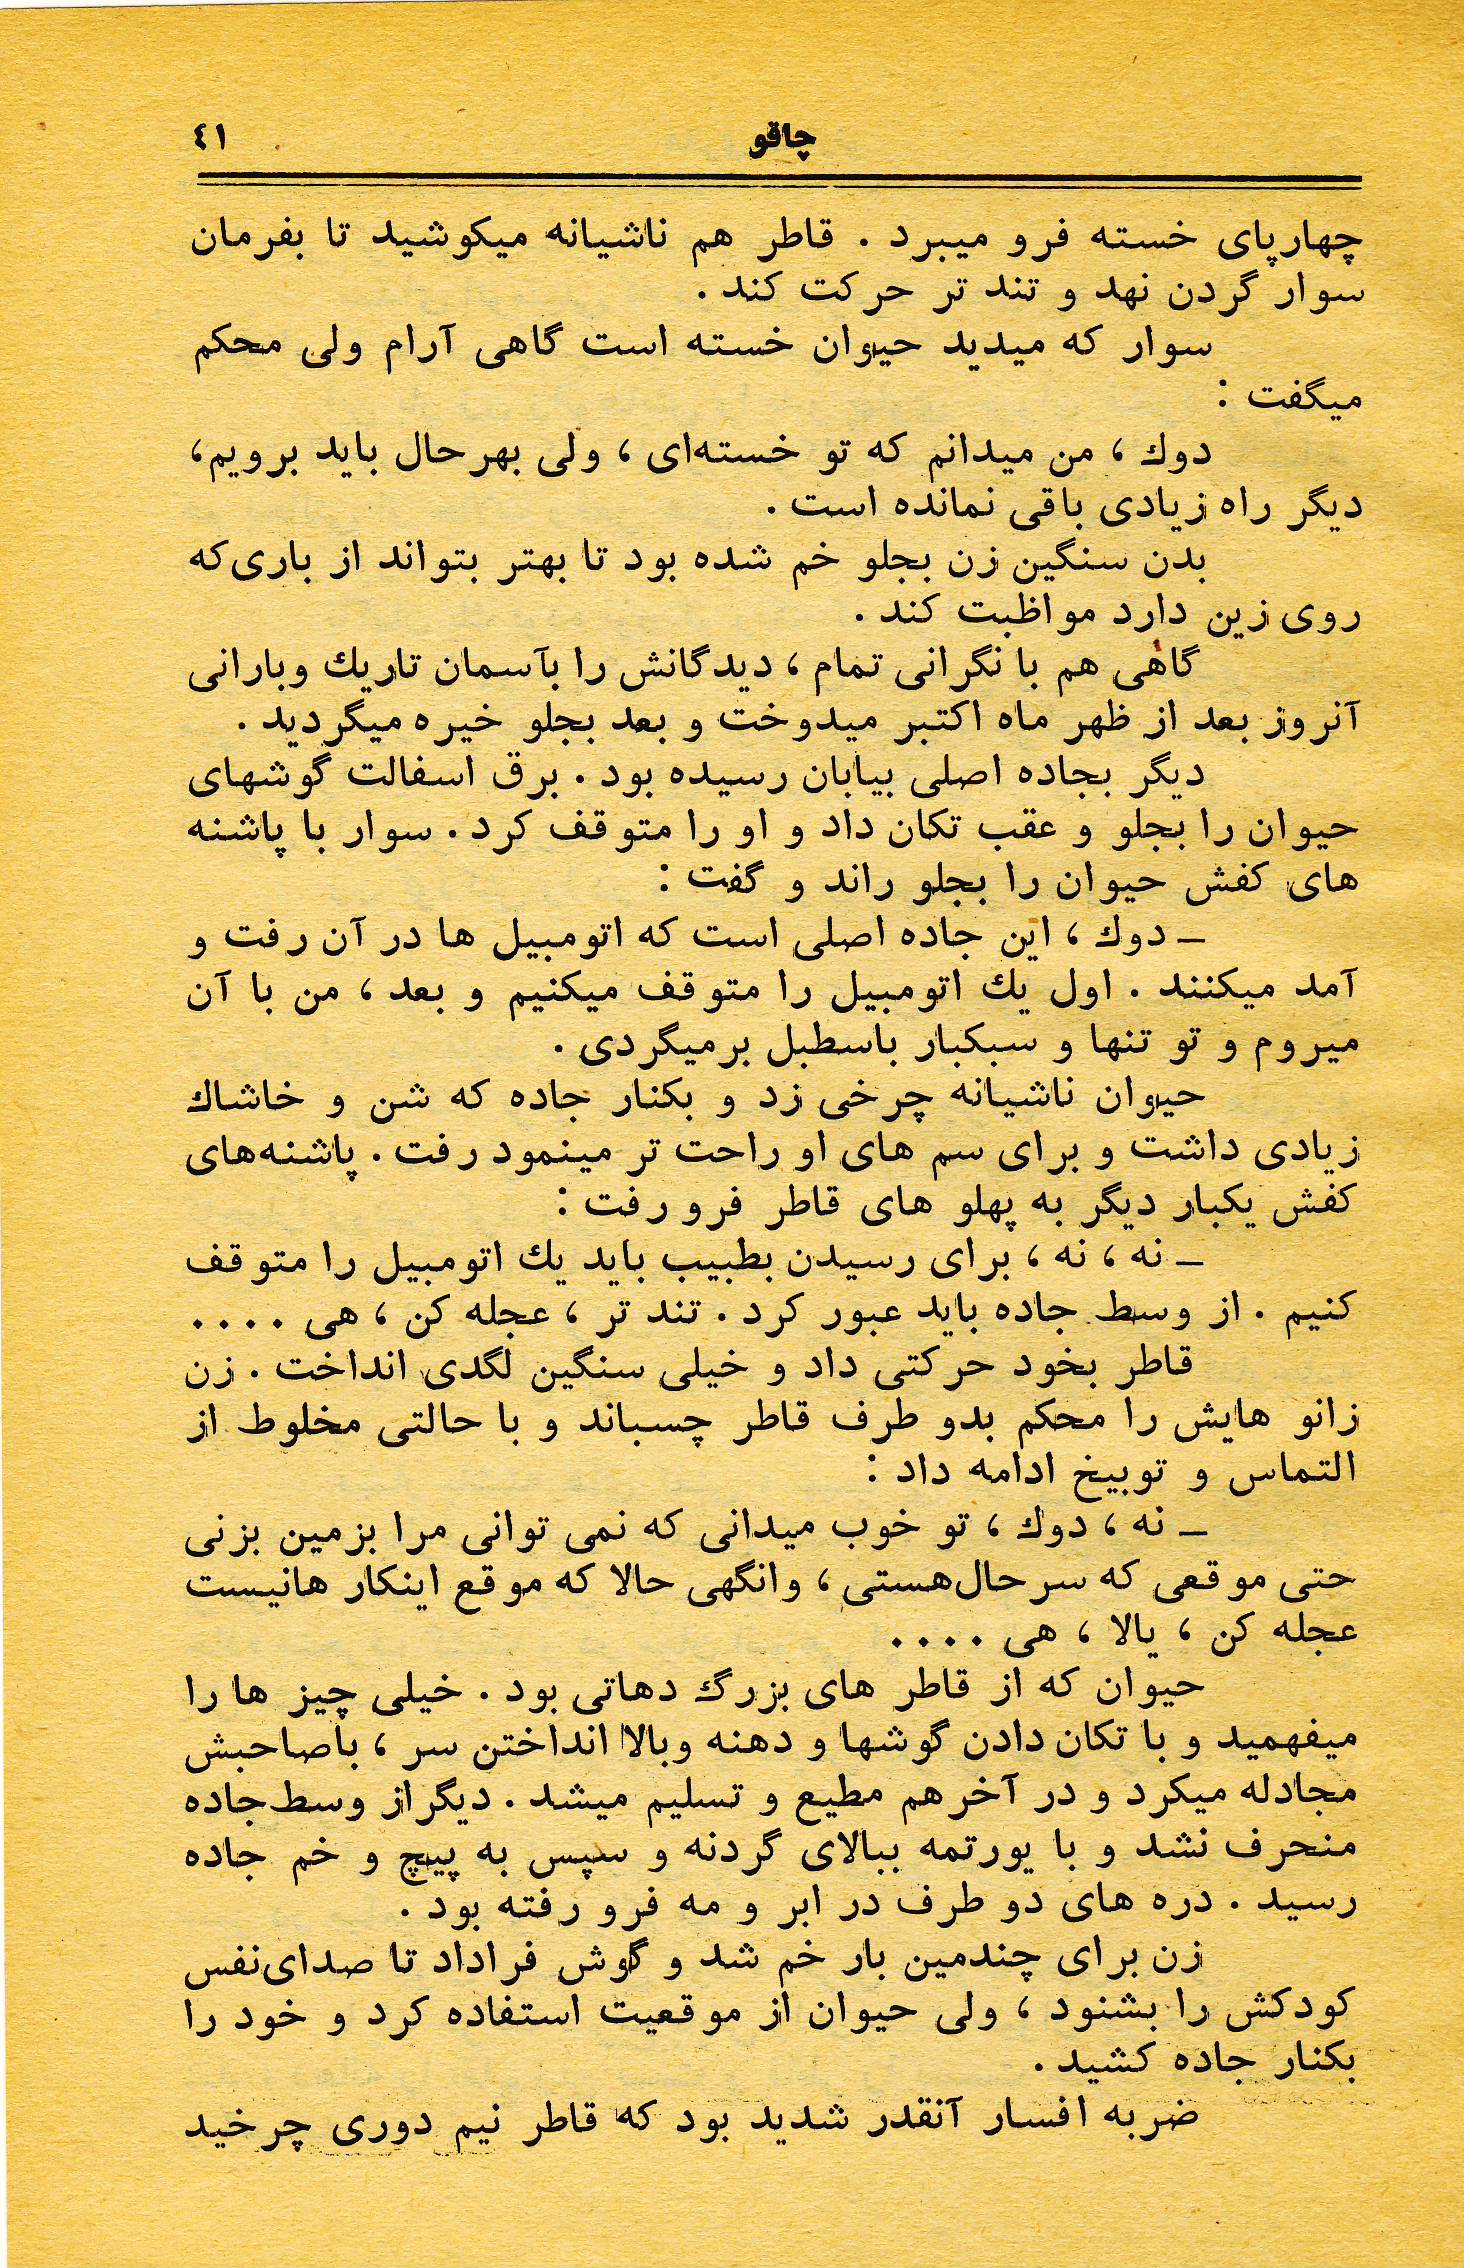 چاقو ٤١
چهارپای خسته فرو میبرد . قاطر هم ناشیانه میکوشید تا بفرمان
سوار گردن نهد و تند تر حرکت کند .
سوار که میدید حیوان خسته است گاهی آرام ولی محکم
میگفت :
دوك ، من میدانم که تو خسته‌ای ، ولی بهرحال باید برویم،
دیگر راه زیادی باقی نمانده است .
بدن سنگین زن بجلو خم شده بود تا بهتر بتواند از باری‌که
روی زین دارد مواظبت کند .
گاهی هم با نگرانی تمام ، دیدگانش را بآسمان تاریك وبارانی
آنروز بعد از ظهر ماه اکتبر میدوخت و بعد بجلو خیره میگردید .
دیگر بجاده اصلی بیابان رسیده بود . برق اسفالت گوشهای
حیوان را بجلو و عقب تکان داد و او را متوقف کرد . سوار با پاشنه
های کفش حیوان را بجلو راند و گفت :
ـ دوك ، این جاده اصلی است که اتومبیل ها در آن رفت و
آمد میکنند . اول یك اتومبیل را متوقف میکنیم و بعد ، من با آن
میروم و تو تنها و سبکبار باسطبل برمیگردی .
حیوان ناشیانه چرخی زد و بکنار جاده که شن و خاشاك
زیادی داشت و برای سم های او راحت تر مینمود رفت . پاشنه‌های
کفش یکبار دیگر به پهلو های قاطر فرو رفت :
ـ نه ، نه ، برای رسیدن بطبیب باید یك اتومبیل را متوقف
کنیم . از وسط جاده باید عبور کرد . تند تر ، عجله کن ، هی ....
قاطر بخود حرکتی داد و خیلی سنگین لگدی انداخت . زن
زانو هایش را محکم بدو طرف قاطر چسباند و با حالتی مخلوط از
التماس و توبیخ ادامه داد :
ـ نه ، دوك ، تو خوب میدانی که نمی توانی مرا بزمین بزنی
حتی موقعی که سرحال‌هستی ، وانگهی حالا که موقع اینکار هانیست
عجله کن ، یالا ، هی ....
حیوان که از قاطر های بزرگ دهاتی بود . خیلی چیز ها را
میفهمید و با تکان دادن گوشها و دهنه وبالا انداختن سر ، باصاحبش
مجادله میکرد و در آخر هم مطیع و تسلیم میشد . دیگراز وسط جاده
منحرف نشد و با یورتمه ببالای گردنه و سپس به پیچ و خم جاده
رسید . دره های دو طرف در ابر و مه فرو رفته بود .
زن برای چندمین بار خم شد و گوش فراداد تا صدای‌نفس
کودکش را بشنود ، ولی حیوان از موقعیت استفاده کرد و خود را
بکنار جاده کشید .
ضربه افسار آنقدر شدید بود که قاطر نیم دوری چرخید